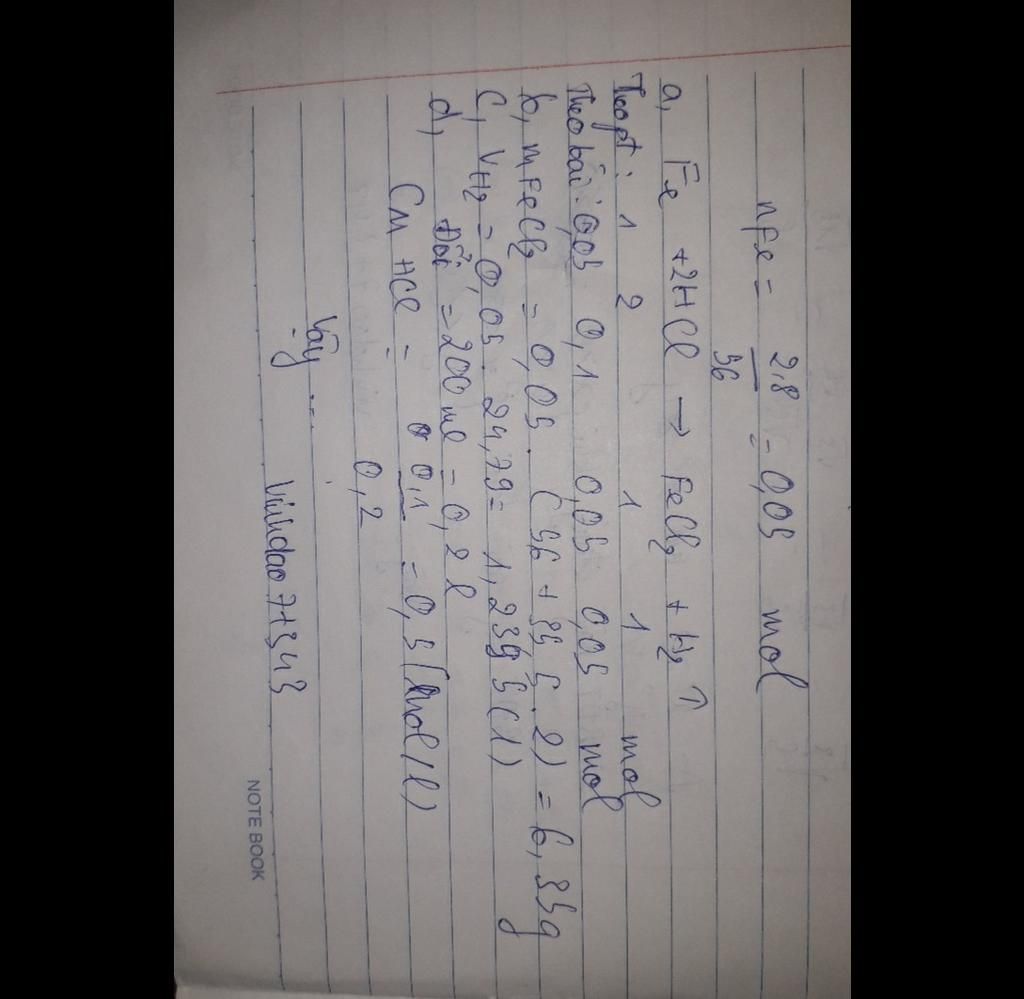 nFe = 2,8 / 56 = 0,05 mol
a, Fe + 2HCl → FeCl2 + H2 ↑
Theo pt : 1 2 1 1 mol
Theo bài : 0,05 0,1 0,05 0,05 mol
b, mFeCl2 = 0,05 . (56 + 35,5 . 2) = 6,35g
c, VH2 = 0,05 . 24,79 = 1,2395 (l)
d, Đổi = 200 ml = 0,2 l
CM HCl = 0,1 / 0,2 = 0,5 (mol/l)
Vậy ...
Vinhdao7+343
NOTE BOOK